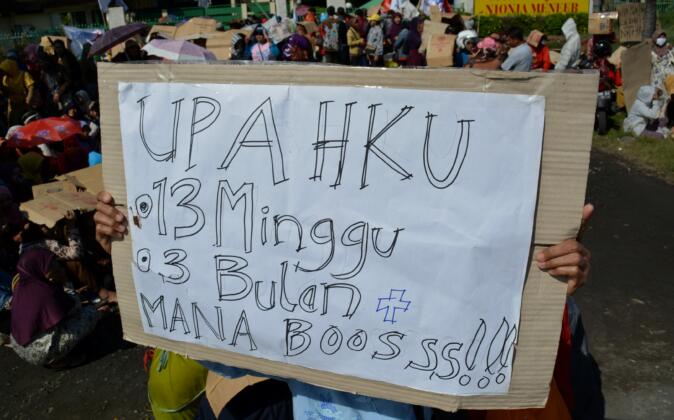 NYONJA MENEER
UPAHKU
•13 Minggu
•3 Bulan +
MANA BOOSSSS!!!